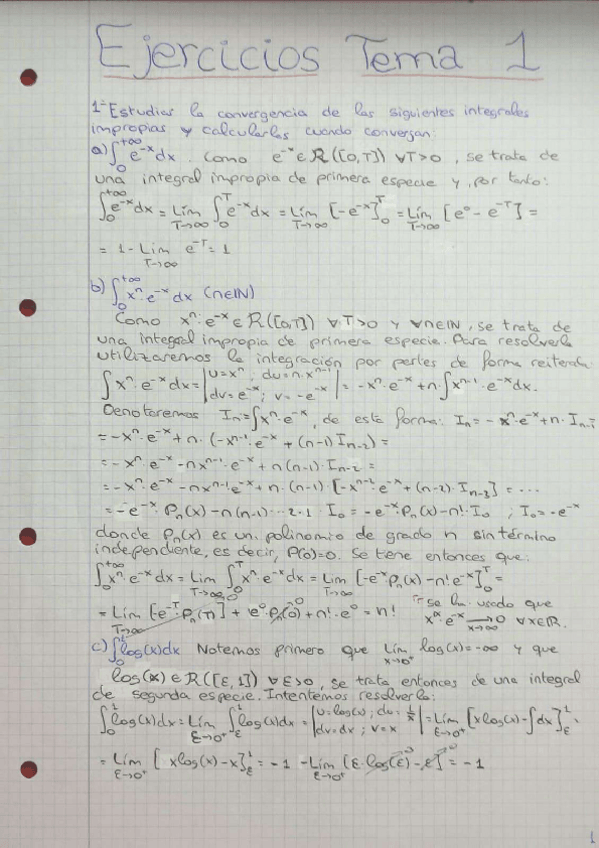 Ejercicios Tema 1
1- Estudiar la convergencia de las siguientes integrales
impropias y calcularlas cuando converjan:
a) ∫₀^{+∞} e^{-x} dx. Como e^{-x} ∈ R([0,T]) ∀T>0, se trata de
una integral impropia de primera especie y, por tanto:
∫₀^{+∞} e^{-x} dx = Lim_{T→∞} ∫₀^T e^{-x} dx = Lim_{T→∞} [-e^{-x}]₀^T = Lim_{T→∞} [e⁰ - e^{-T}] =
= 1 - Lim_{T→∞} e^{-T} = 1
b) ∫₀^{+∞} xⁿ · e^{-x} dx (n∈IN)
Como xⁿ · e^{-x} ∈ R([0,T]) ∀T>0 y ∀n∈IN, se trata de
una integral impropia de primera especie. Para resolverla
utilizaremos la integración por partes de forma reiterada:
∫ xⁿ · e^{-x} dx = | u = xⁿ ; du = n·x^{n-1} dv = e^{-x} ; v = -e^{-x} | = -xⁿ · e^{-x} + n·∫ x^{n-1} · e^{-x} dx.
Denotaremos Iₙ = ∫ xⁿ · e^{-x}, de esta forma: Iₙ = -xⁿ · e^{-x} + n · I_{n-1}
= -xⁿ · e^{-x} + n · (-x^{n-1} · e^{-x} + (n-1) I_{n-2}) =
= -xⁿ · e^{-x} - n x^{n-1} · e^{-x} + n(n-1) · I_{n-2} =
= -xⁿ · e^{-x} - n x^{n-1} e^{-x} + n · (n-1) · [-x^{n-2} · e^{-x} + (n-2) · I_{n-3}] = ...
= -e^{-x} · Pₙ(x) - n(n-1) ··· 2·1 · I₀ = -e^{-x} · Pₙ(x) - n! · I₀ ; I₀ = -e^{-x}
donde Pₙ(x) es un polinomio de grado n sin término
independiente, es decir, P(0)=0. Se tiene entonces que:
∫₀^{+∞} xⁿ · e^{-x} dx = Lim_{T→∞} ∫₀^T xⁿ · e^{-x} dx = Lim_{T→∞} [-e^{-x} Pₙ(x) - n! e^{-x}]₀^T =
= Lim_{T→∞} [-e^{-T} · Pₙ(T)] + e⁰ · Pₙ(0) + n! · e⁰ = n!
se ha usado que
x^α e^{-x} →_{x→∞} 0 ∀α∈R.
c) ∫₀¹ log(x) dx Notemos primero que Lim_{x→0⁺} log(x) = -∞ y que
log(x) ∈ R([ε,1]) ∀ε>0, se trata entonces de una integral
de segunda especie. Intentemos resolverla:
∫₀¹ log(x) dx = Lim_{ε→0⁺} ∫_ε¹ log(x) dx = | u = log(x) ; du = 1/x dv = dx ; v = x | = Lim_{ε→0⁺} [x log(x) - ∫dx]_ε¹ =
= Lim_{ε→0⁺} [x log(x) - x]_ε¹ = -1 - Lim_{ε→0⁺} [ε · log(ε) - ε] = -1
1